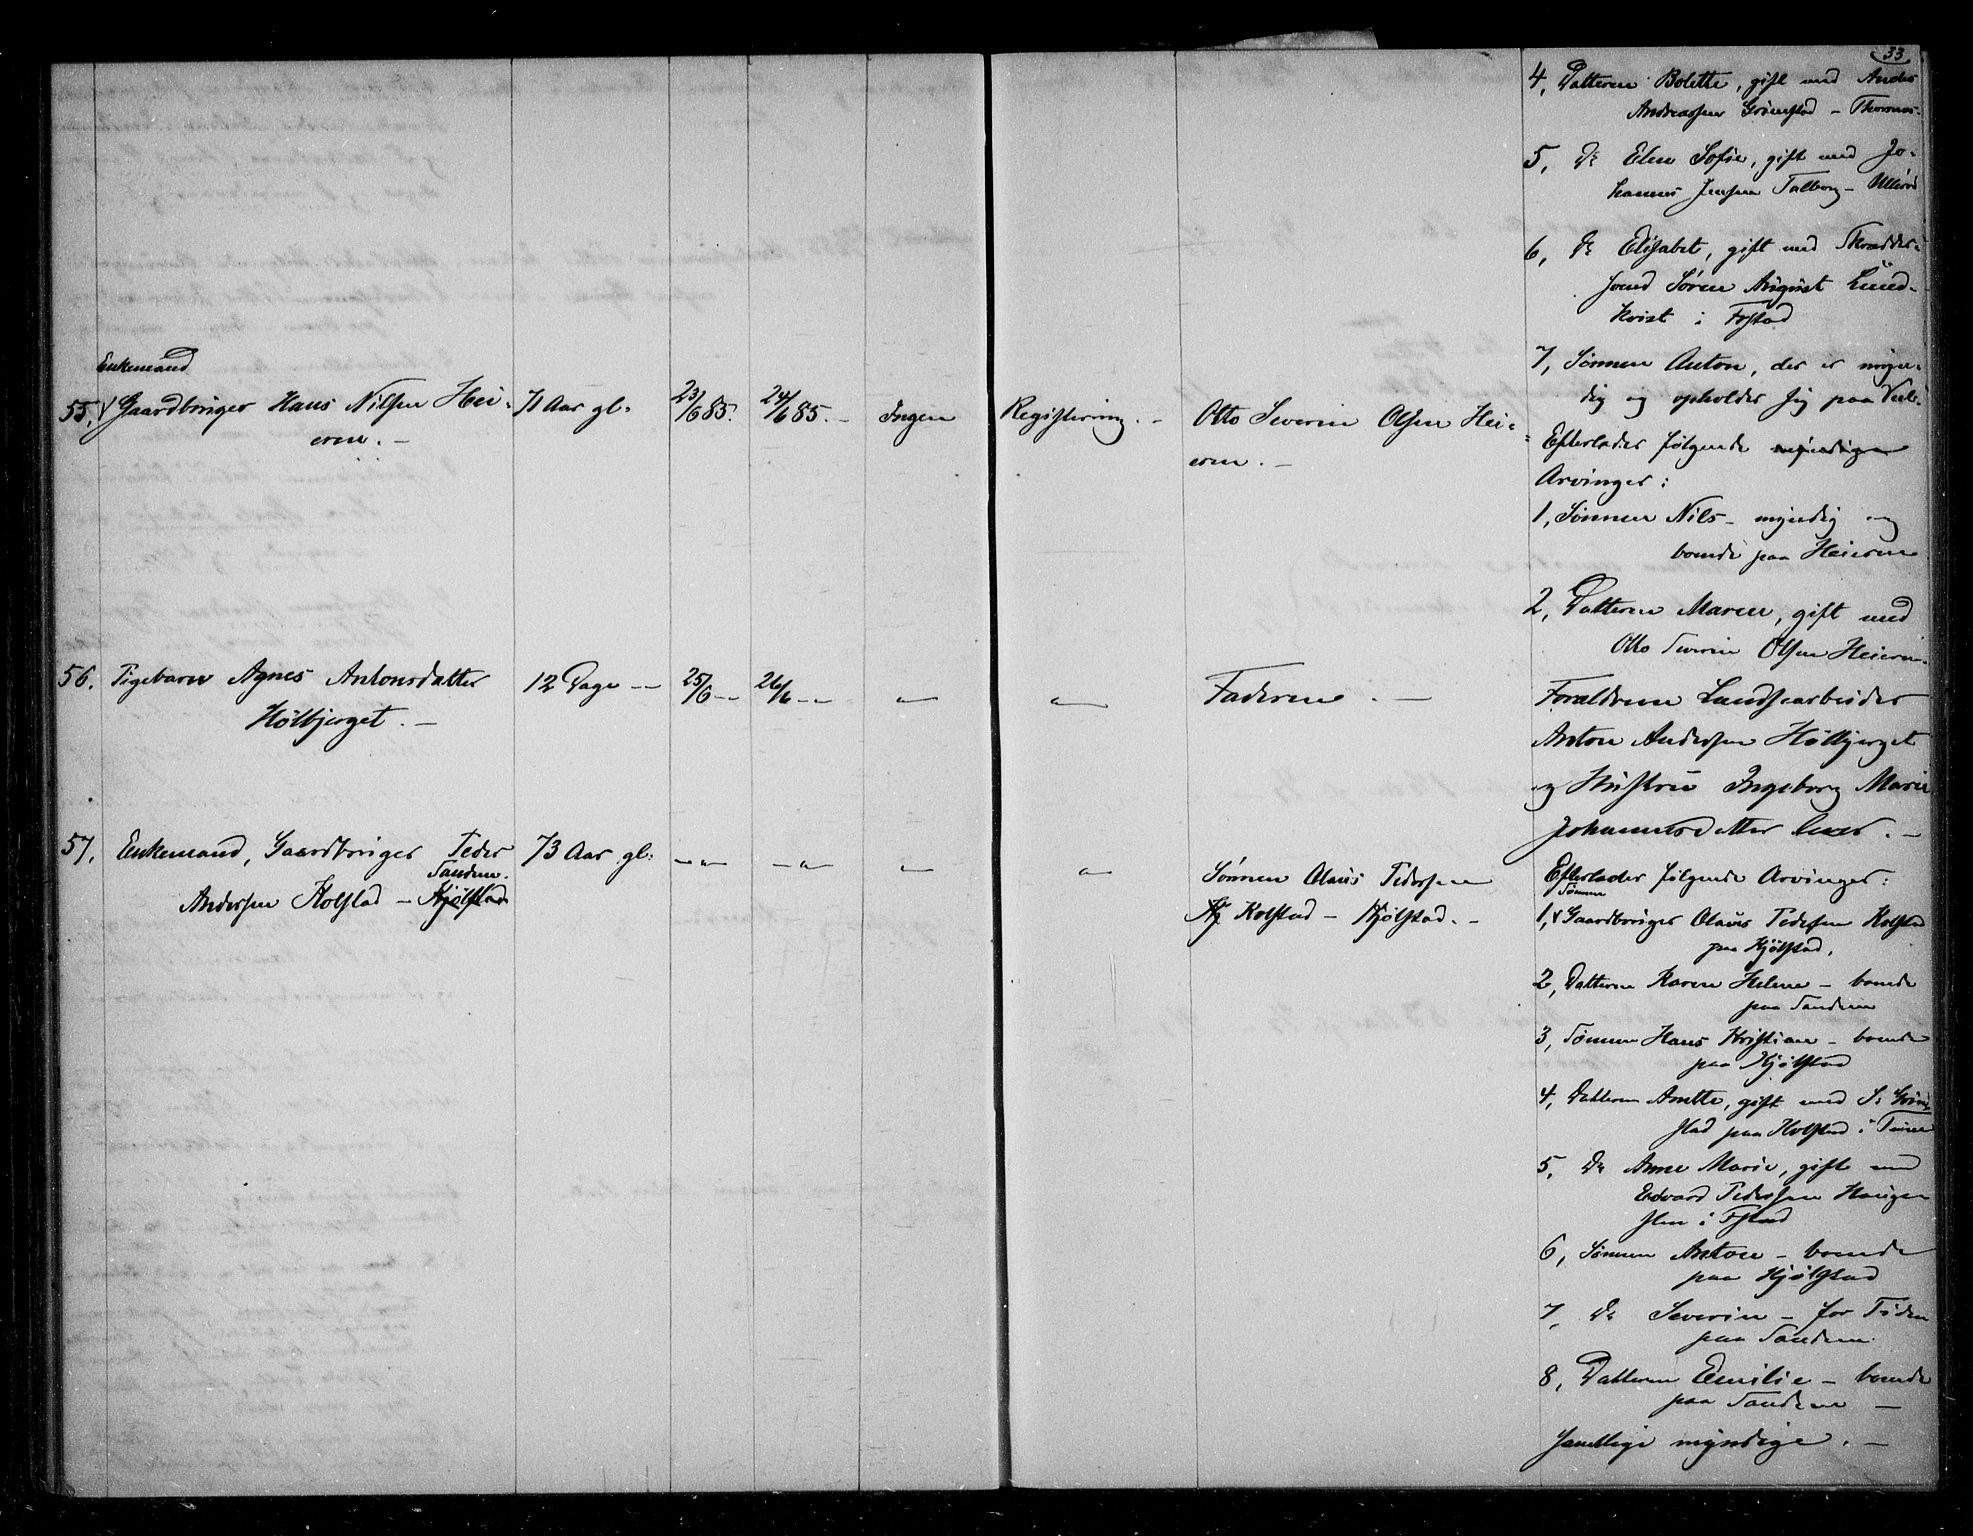 33
4, Datteren Bolette, gift med Anders
Andreassen Grimstad – Thorsnes.
5, Do Elen Sofie, gift med Jo-
hannes Jensen Talberg – Ullerød
6, Do Elisabet, gift med Skrædder-
svend Søren August Lund-
kvist i Fstad
7, Sønnen Anton, der er myn-
dig og opholder sig paa
Enkemand
55, Gaardbruger Hans Nilsen Hei-
eren. –
71 Aar gl.
23/6 85.
24/6 85. –
Ingen
Registrering. –
Otto Severin Olsen Hei-
eren. –
Efterlader følgende myndige
Arvinger:
1, Sønnen Nils – myndig og
boende paa Heieren
2, Datteren Maren, gift med
Otto Severin Olsen Heieren.
56. Pigebarn Agnes Antonsdatter
Hølbjerget. –
12 Dage –
25/6 – „ –
26/6 – „ –
– „ –
– „ –
Faderen. –
Forældrene Landsarbeider
Anton Andersen Hølbjerget
og Hustru Ingeborg Marie
Johannesdatter lever. –
57, Enkemand, Gaardbruger Peder
Sandem.
Andersen Kolstad – Kjølstad
73 Aar gl.
– „ –
– „ –
– „ –
– „ –
Sønnen Olaus Pedersen
Kj Kolstad – Kjølstad. –
Efterlader følgende Arvinger:
Sønnen
1, Gaardbruger Olaus Pedersen Kolstad
paa Kjølstad,
2, Datteren Karen Helene – boende
paa Sandem
3, Sønnen Hans Kristian – boende
paa Kjølstad
4, Datteren Anette, gift med S. Grim-
stad paa Kolstad i Tune
5, Do Anne Marie, gift med
Edvard Pedersen Haugen
i Fstad
6, Sønnen Anton – boende
paa Kjølstad
7, Do Severin – for Tiden
paa Sandem
8, Datteren Emilie – boende
paa Sandem –
samtlige myndige. –